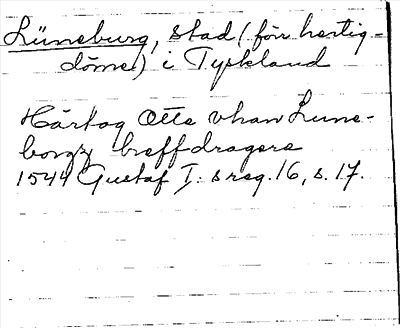 Lüneburg, stad (förr hertig-
döme) i Tyskland
Hårtog Otte vhan Lune-
borgz breffdragere
1544 Gustaf I: s reg. 16, s. 17.